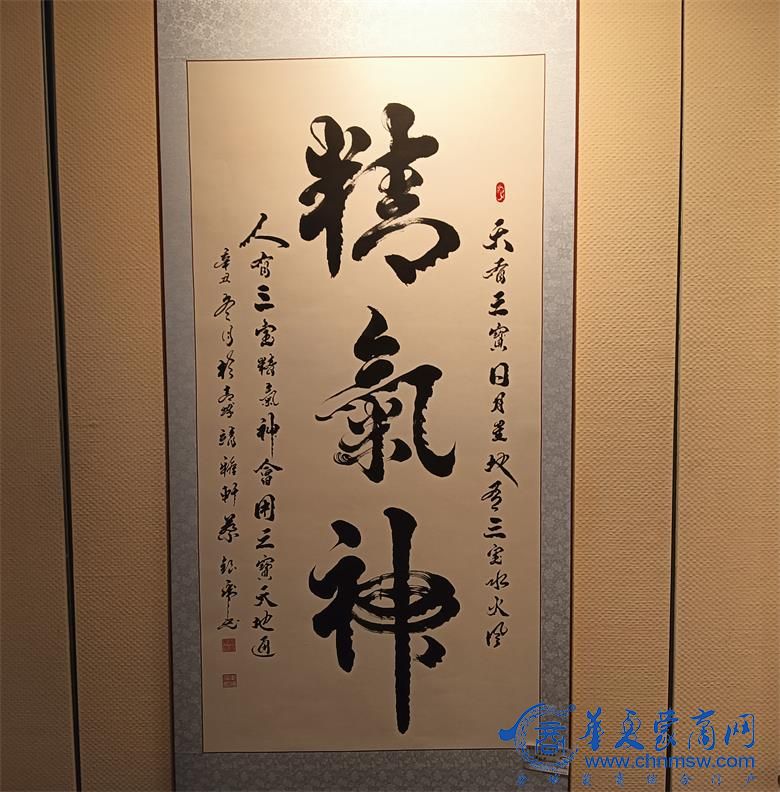 精氣神
天有三寳日月星地有三宝水火風
人有三宝精氣神會用三寳天地通
辛丑冬月於
雅軒蔡
華夏蒙商网
www.chnmsw.com